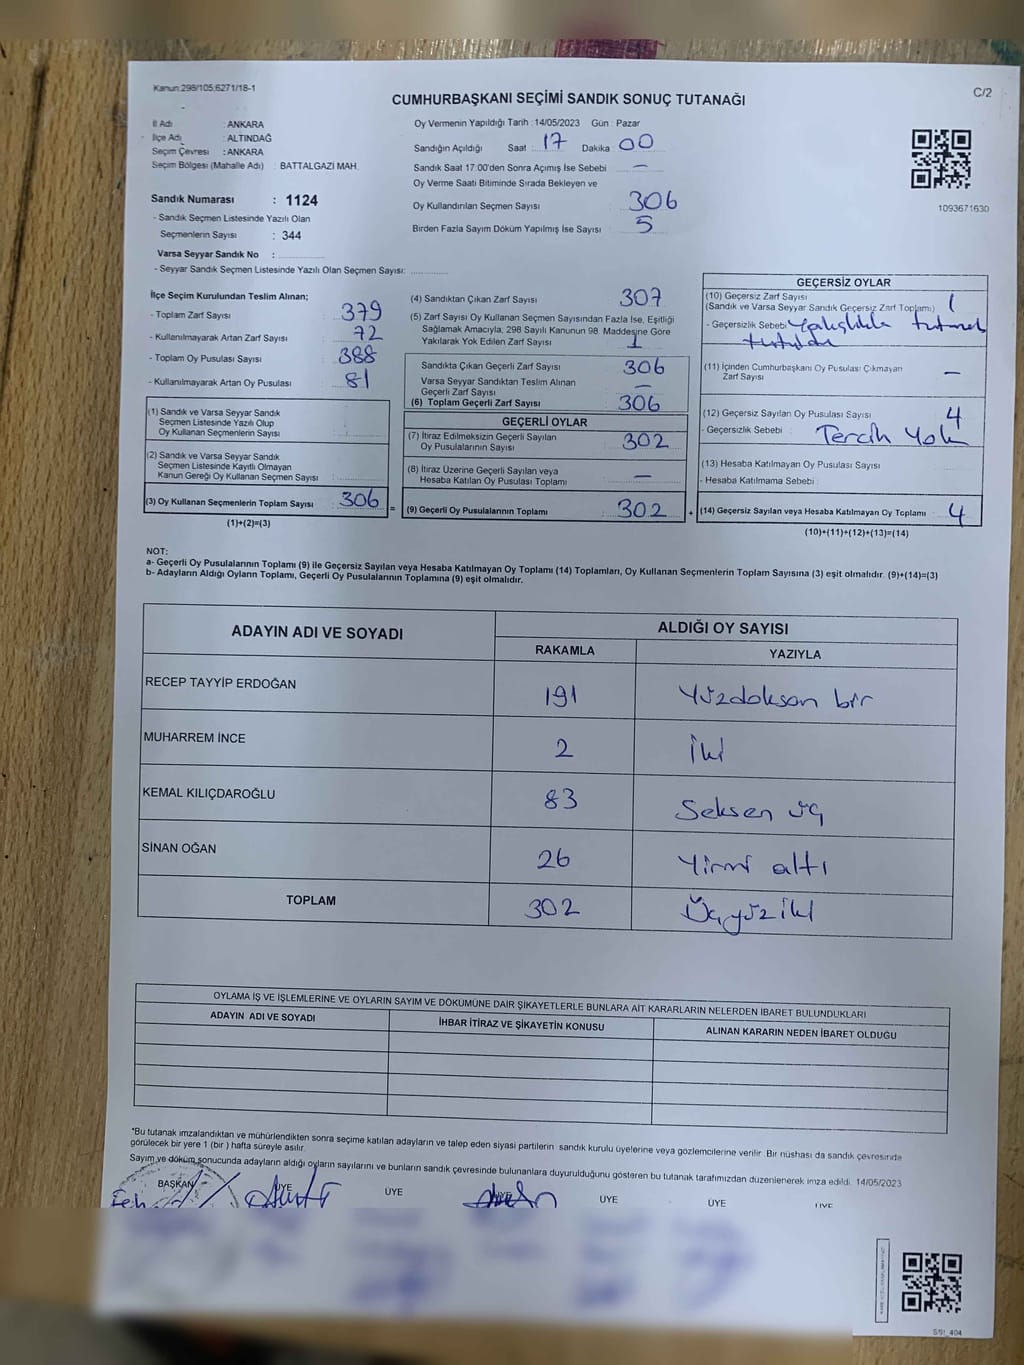 Kanun:298/105;6271/18-1
C/2
CUMHURBAŞKANI SEÇİMİ SANDIK SONUÇ TUTANAĞI
İl Adı : ANKARA
İlçe Adı : ALTINDAĞ
Seçim Çevresi : ANKARA
Seçim Bölgesi (Mahalle Adı) : BATTALGAZİ MAH.
Sandık Numarası : 1124
- Sandık Seçmen Listesinde Yazılı Olan
Seçmenlerin Sayısı : 344
Varsa Seyyar Sandık No :
- Seyyar Sandık Seçmen Listesinde Yazılı Olan Seçmen Sayısı:
Oy Vermenin Yapıldığı Tarih : 14/05/2023 Gün : Pazar
Sandığın Açıldığı Saat : 17 Dakika : 00
Sandık Saat 17:00'den Sonra Açımış İse Sebebi : —
Oy Verme Saati Bitiminde Sırada Bekleyen ve
Oy Kullandırılan Seçmen Sayısı : 306
Birden Fazla Sayım Döküm Yapılmış İse Sayısı : 5
1093671630
İlçe Seçim Kurulundan Teslim Alınan;
- Toplam Zarf Sayısı : 379
- Kullanılmayarak Artan Zarf Sayısı : 72
- Toplam Oy Pusulası Sayısı : 388
- Kullanılmayarak Artan Oy Pusulası : 81
(1) Sandık ve Varsa Seyyar Sandık
Seçmen Listesinde Yazılı Olup
Oy Kullanan Seçmenlerin Sayısı :
(2) Sandık ve Varsa Seyyar Sandık
Seçmen Listesinde Kayıtlı Olmayan
Kanun Gereği Oy Kullanan Seçmen Sayısı :
(3) Oy Kullanan Seçmenlerin Toplam Sayısı : 306 =
(1)+(2)=(3)
(4) Sandıktan Çıkan Zarf Sayısı : 307
(5) Zarf Sayısı Oy Kullanan Seçmen Sayısından Fazla İse, Eşitliği
Sağlamak Amacıyla, 298 Sayılı Kanunun 98. Maddesine Göre
Yakılarak Yok Edilen Zarf Sayısı : 1
Sandıkta Çıkan Geçerli Zarf Sayısı : 306
Varsa Seyyar Sandıktan Teslim Alınan
Geçerli Zarf Sayısı : —
(6) Toplam Geçerli Zarf Sayısı : 306
GEÇERLİ OYLAR
(7) İtiraz Edilmeksizin Geçerli Sayılan
Oy Pusulalarının Sayısı : 302
(8) İtiraz Üzerine Geçerli Sayılan veya
Hesaba Katılan Oy Pusulası Toplamı : —
(9) Geçerli Oy Pusulalarının Toplamı : 302 +
GEÇERSİZ OYLAR
(10) Geçersiz Zarf Sayısı : 1
(Sandık ve Varsa Seyyar Sandık Geçersiz Zarf Toplamı)
- Geçersizlik Sebebi
(11) İçinden Cumhurbaşkanı Oy Pusulası Çıkmayan
Zarf Sayısı : —
(12) Geçersiz Sayılan Oy Pusulası Sayısı : 4
- Geçersizlik Sebebi : Tercih Yok
(13) Hesaba Katılmayan Oy Pusulası Sayısı :
- Hesaba Katılmama Sebebi :
(14) Geçersiz Sayılan veya Hesaba Katılmayan Oy Toplamı : 4
(10)+(11)+(12)+(13)=(14)
NOT:
a- Geçerli Oy Pusulalarının Toplamı (9) ile Geçersiz Sayılan veya Hesaba Katılmayan Oy Toplamı (14) Toplamları, Oy Kullanan Seçmenlerin Toplam Sayısına (3) eşit olmalıdır. (9)+(14)=(3)
b- Adayların Aldığı Oyların Toplamı, Geçerli Oy Pusulalarının Toplamına (9) eşit olmalıdır.
ADAYIN ADI VE SOYADI
ALDIĞI OY SAYISI
RAKAMLA YAZIYLA
RECEP TAYYİP ERDOĞAN 191 Yüzdoksan bir
MUHARREM İNCE 2 İki
KEMAL KILIÇDAROĞLU 83 Seksen üç
SİNAN OĞAN 26 Yirmi altı
TOPLAM 302 Üçyüz iki
OYLAMA İŞ VE İŞLEMLERİNE VE OYLARIN SAYIM VE DÖKÜMÜNE DAİR ŞİKAYETLERLE BUNLARA AİT KARARLARIN NELERDEN İBARET BULUNDUKLARI
ADAYIN ADI VE SOYADI İHBAR İTİRAZ VE ŞİKAYETİN KONUSU ALINAN KARARIN NEDEN İBARET OLDUĞU
*Bu tutanak imzalandıktan ve mühürlendikten sonra seçime katılan adayların ve talep eden siyasi partilerin sandık kurulu üyelerine veya gözlemcilerine verilir. Bir nüshası da sandık çevresinde
görülecek bir yere 1 (bir) hafta süreyle asılır.
Sayım ve döküm sonucunda adayların aldığı oyların sayılarını ve bunların sandık çevresinde bulunanlara duyurulduğunu gösteren bu tutanak tarafımızdan düzenlenerek imza edildi. 14/05/2023
BAŞKAN ÜYE ÜYE ÜYE ÜYE ÜYE ÜYE